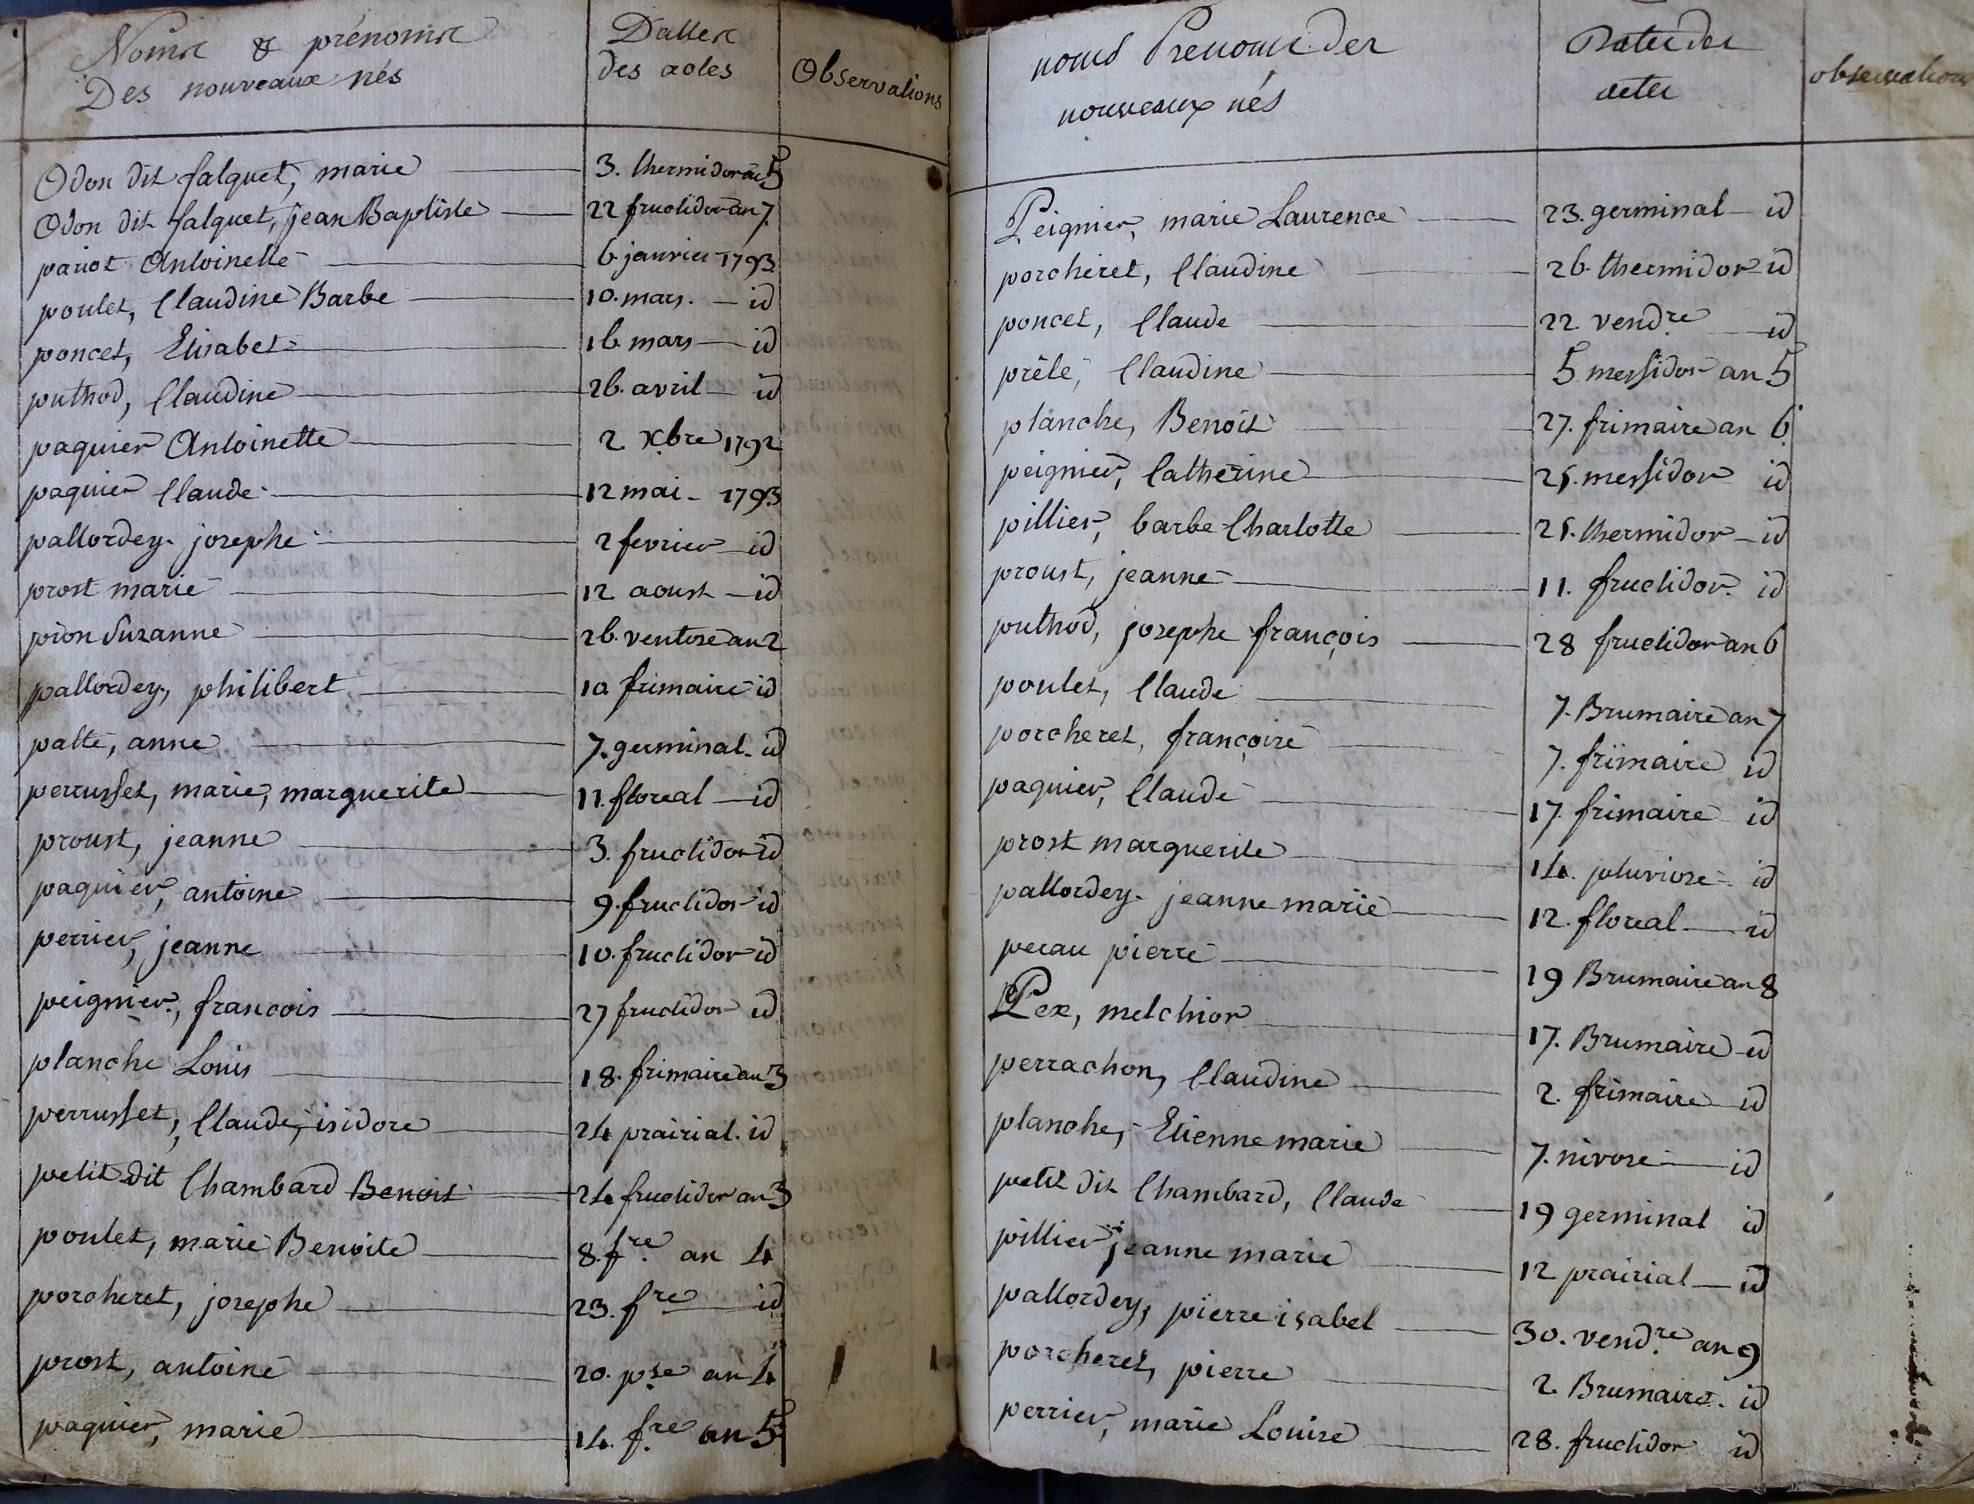 Noms & prénoms
Des nouveaux nés
Dattes
des actes
Observations
Odon dit falquet, marie 3. thermidor an 5
Odon dit falquet, jean Baptiste 22 fructidor an 7.
pariot Antoinette 6 janvier 1793
poulet, Claudine Barbe 10. mars. id
poncet, Elisabet 16 mars id
puthod, Claudine 26. avril id
paquier Antoinette 2 Xbre 1792
paquier Claude 12 mai 1793
pallordey. josephe 2 fevrier id
prost marie 12 aoust id
pion Suzanne 26. ventose an 2
pallordey, philibert 10 frimaire id
patte, anne 7. germinal. id
perrusset, marie, marguerite 11. floreal id
proust, jeanne 3. fructidor id
paquier, antoine 9. fructidor id
perrier, jeanne 10. fructidor id
peignier, francois 27 fructidor id
planche Louis 18. frimaire an 3
perrusset, Claude, isidore 24 prairial. id
petit dit Chambard Benoist 24 fructidor an 3
poulet, marie Benoite 8. fre. an 4
porcheret, josephe 23. fre id
prost, antoine 20. pse an 4
paquier, marie 14. fre. an 5
noms Prenoms des
nouveaux nés
Dates des
actes
observations
Peignier, marie Laurence 23. germinal id
porcheret, Claudine 26. thermidor id
poncet, Claude 22 vendre id
prêle, Claudine 5 messidor an 5
planche, Benoit 27. frimaire an 6
peignier, Catherine 25. messidor id
pillier, barbe Charlotte 25. thermidor id
proust, jeanne 11. fructidor. id
puthod, josephe françois 28 fructidor an 6
poulet, Claude 7. Brumaire an 7
porcheret, françoise 7. frimaire id
paquier, Claude 17. frimaire id
prost marguerite 14. pluviose id
pallordey. jeanne marie 12. floreal id
pecau pierre 19 Brumaire an 8
Pex, melchior 17. Brumaire id
perrachon, Claudine 2. frimaire id
planche, Etienne marie 7. nivose id
petit dit Chambard, Claude 19 germinal id
pillier jeanne marie 12 prairial id
pallordey, pierre isabel 30. vendre. an 9
porcheret, pierre 2. Brumaire. id
perrier, marie Louise 28. fructidor id